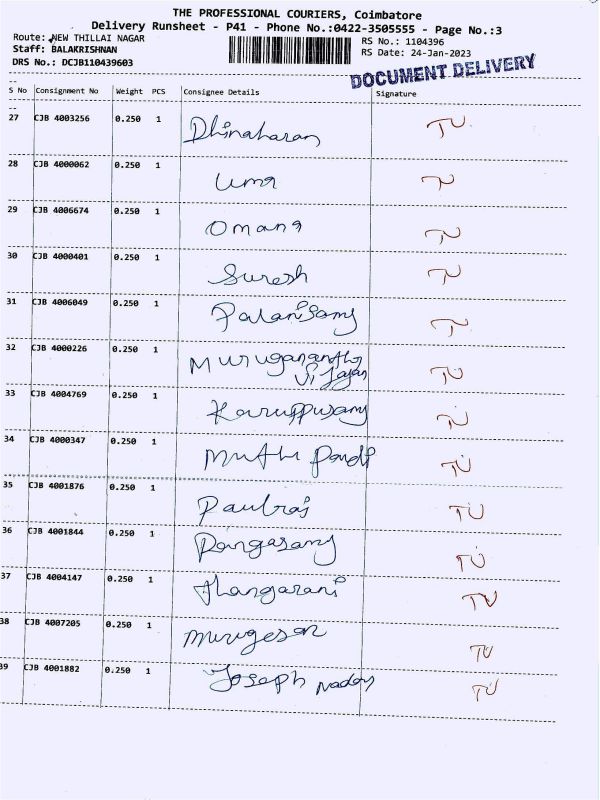 THE PROFESSIONAL COURIERS, Coimbatore
Delivery Runsheet - P41 - Phone No.:0422-3505555 - Page No.:3
Route: NEW THILLAI NAGAR
RS No.: 1104396
Staff: BALAKRISHNAN
RS Date: 24-Jan-2023
DRS No.: DCJB110439603
DOCUMENT DELIVERY
S No Consignment No Weight PCS Consignee Details Signature
27 CJB 4003256 0.250 1 Dhinaharan TU
28 CJB 4000062 0.250 1 Uma TU
29 CJB 4006674 0.250 1 Omana TU
30 CJB 4000401 0.250 1 Suresh TU
31 CJB 4006049 0.250 1 Palanisamy TU
32 CJB 4000226 0.250 1 Murugananthy TU
33 CJB 4004769 0.250 1 Karuppusamy TU
34 CJB 4000347 0.250 1 Muthu Pandi TU
35 CJB 4001876 0.250 1 Paulraj TU
36 CJB 4001844 0.250 1 Rangasamy TU
37 CJB 4004147 0.250 1 Thangarani TU
38 CJB 4007205 0.250 1 Murugesan TU
39 CJB 4001882 0.250 1 Joseph Nadar TU